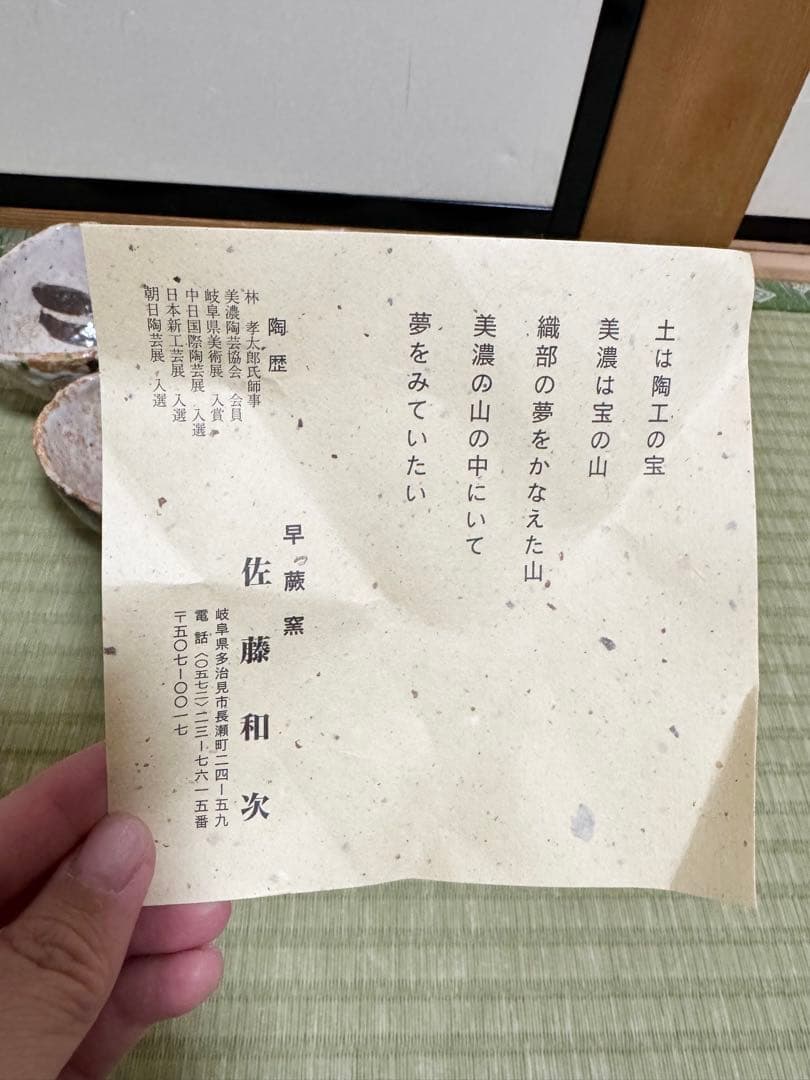 土は陶工の宝
美濃は宝の山
織部の夢をかなえた山
美濃の山の中にいて
夢をみていたい
陶歴
林 孝太郎氏師事
美濃陶芸協会 会員
岐阜県美術展 入賞
中日国際陶芸展 入選
日本新工芸展 入選
朝日陶芸展 入選
早蕨窯
佐藤和次
岐阜県多治見市長瀬町二四ー五九
電話〈〇五七二〉二三ー七六一五番
〒五〇七ー〇〇一七